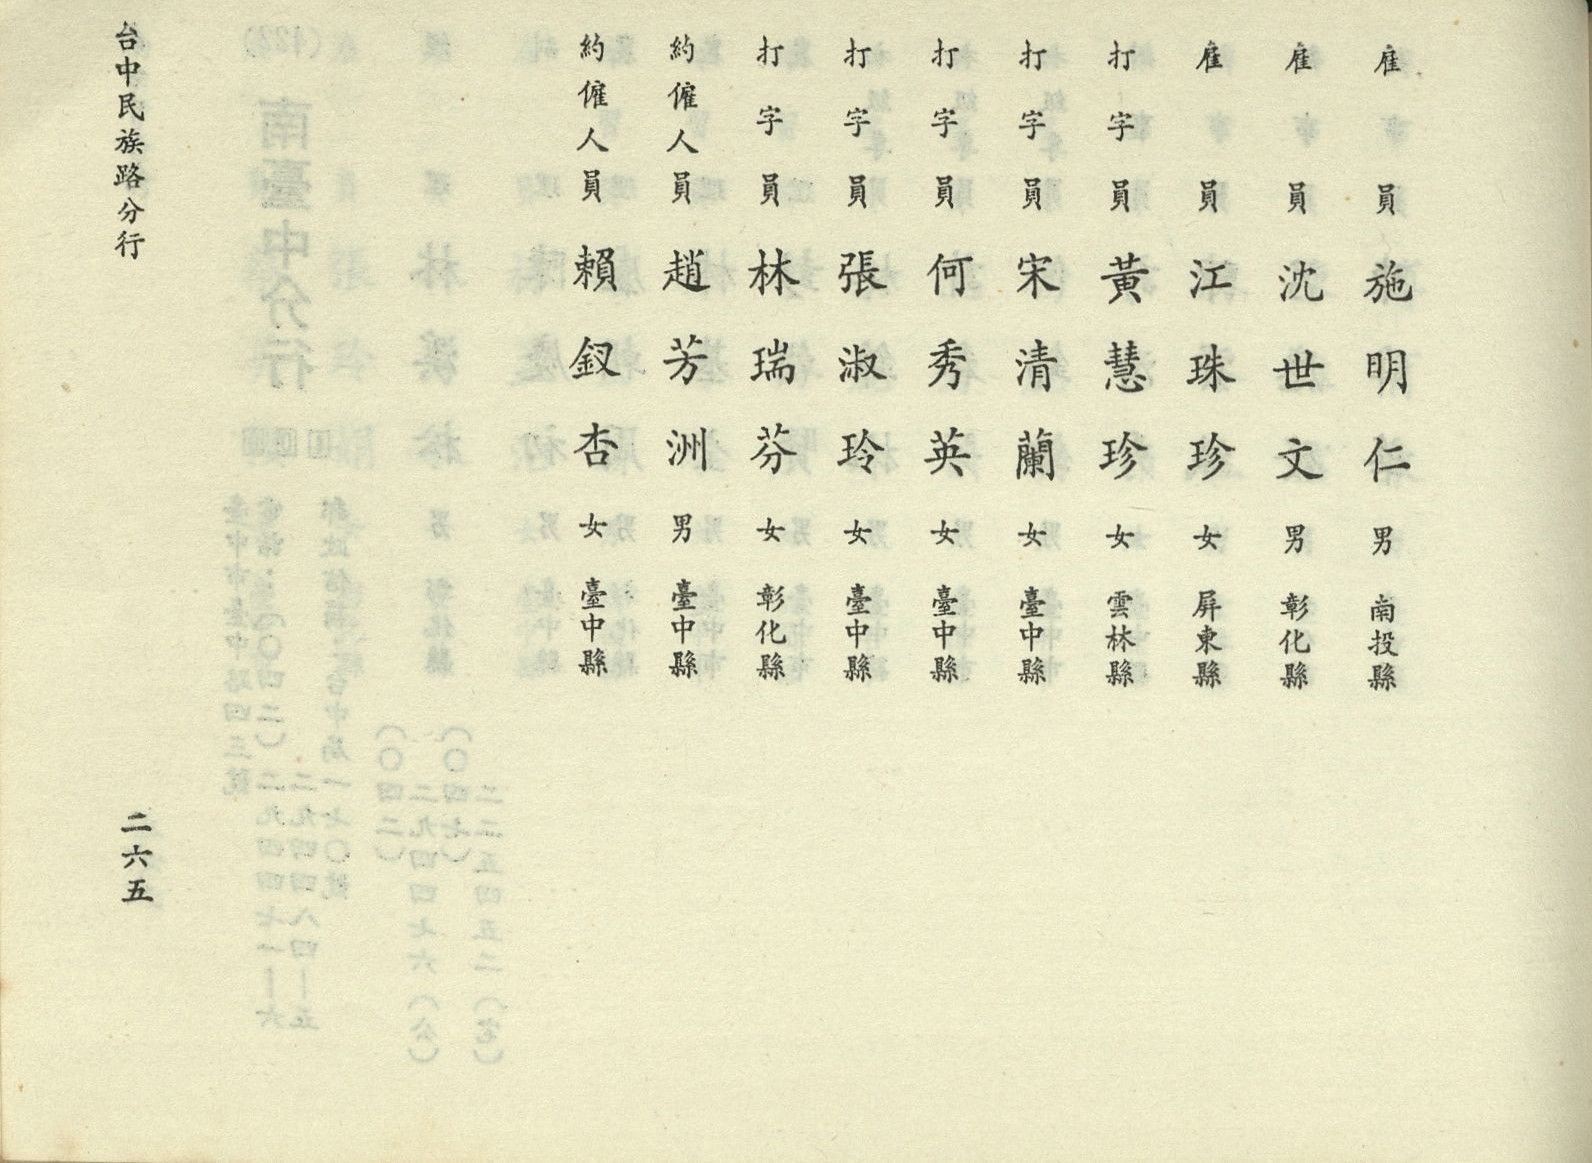 雇員 施明仁 男 南投縣
雇員 沈世文 男 彰化縣
雇員 江珠珍 女 屏東縣
打字員 黃慧珍 女 雲林縣
打字員 宋清蘭 女 臺中縣
打字員 何秀英 女 臺中縣
打字員 張淑玲 女 臺中縣
打字員 林瑞芬 女 彰化縣
約僱人員 趙芳洲 男 臺中縣
約僱人員 賴釵杏 女 臺中縣
台中民族路分行 二六五